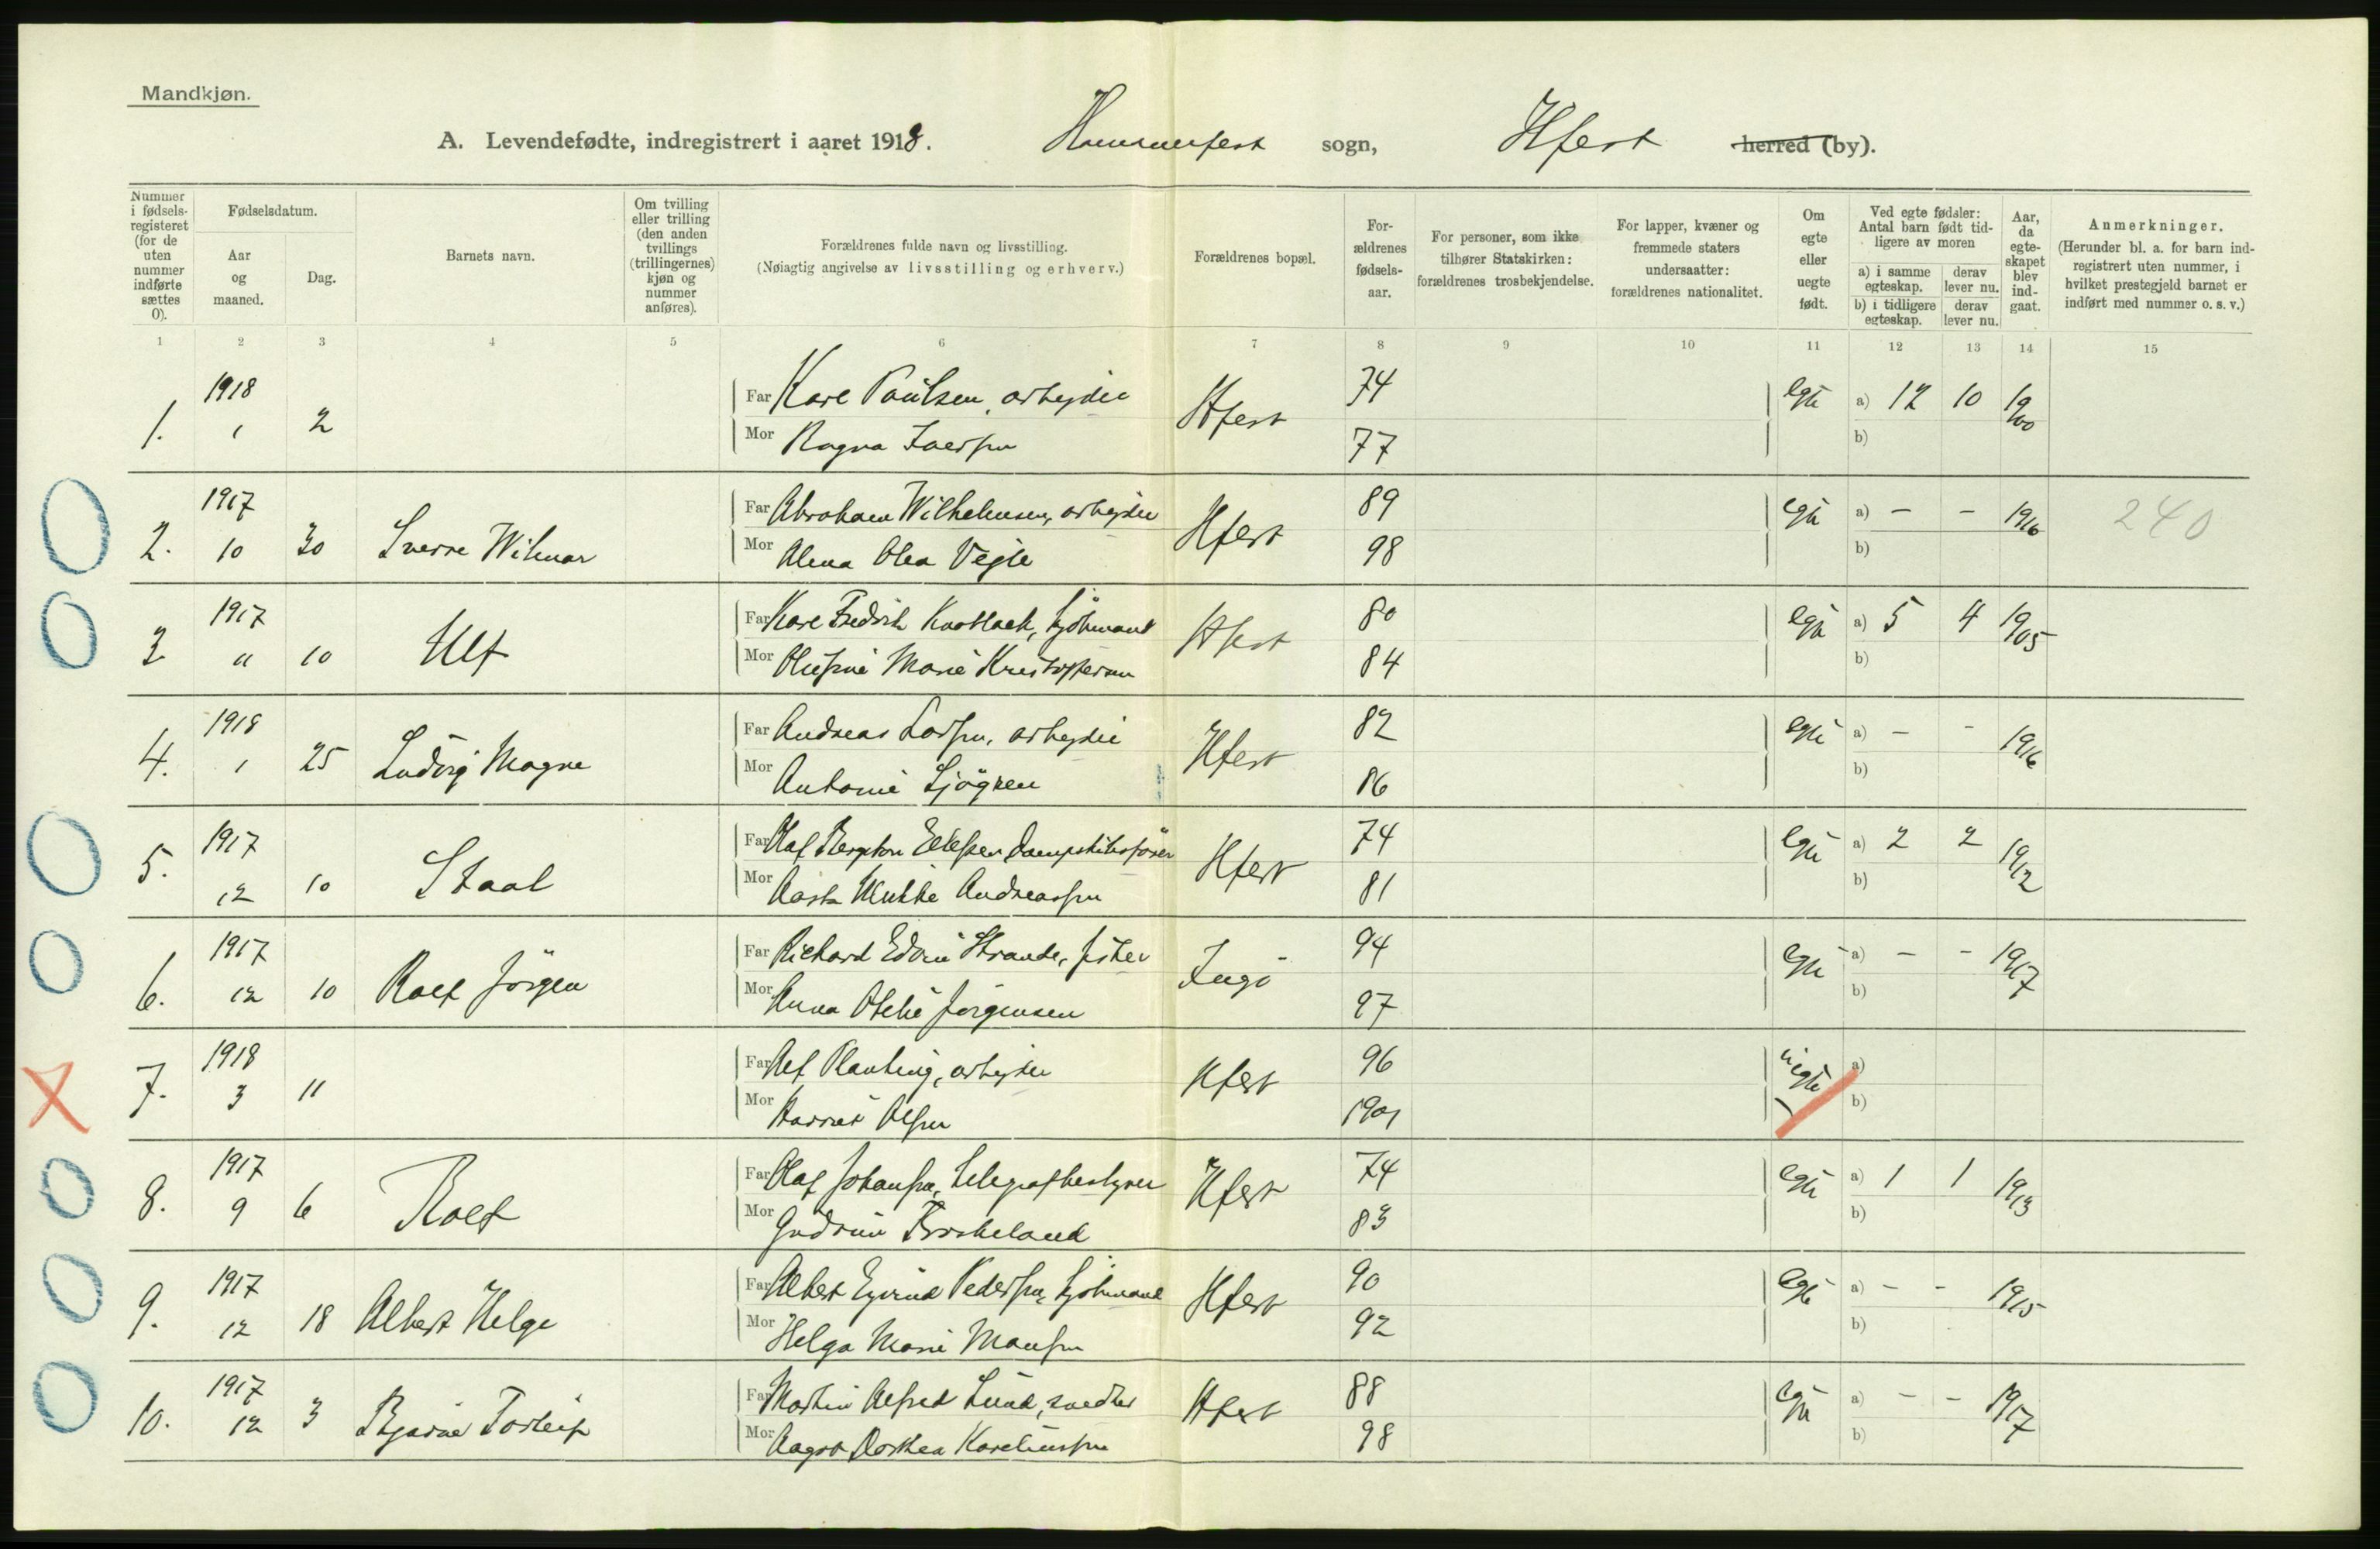 Mandkjøn.
A. Levendefødte, indregistrert i aaret 1918. Hammerfest sogn, Hfest herred (by).
Nummer i fødselsregisteret (for de uten nummer indførte sættes 0).
Fødselsdatum.
Aar og maaned.
Dag.
Barnets navn.
Om tvilling eller trilling (den anden tvillings (trillingernes) kjøn og nummer anføres).
Forældrenes fulde navn og livsstilling.
(Nøiagtig angivelse av livsstilling og erhverv.)
Forældrenes bopæl.
Forældrenes fødselsaar.
For personer, som ikke tilhører Statskirken: forældrenes trosbekjendelse.
For lapper, kvæner og fremmede staters undersaatter: forældrenes nationalitet.
Om egte eller uegte født.
Ved egte fødsler: Antal barn født tidligere av moren
a) i samme egteskap. derav lever nu.
b) i tidligere egteskap. derav lever nu.
Aar, da egteskapet blev indgaat.
Anmerkninger.
(Herunder bl. a. for barn indregistrert uten nummer, i hvilket prestegjeld barnet er indført med nummer o. s. v.)
1 2 3 4 5 6 7 8 9 10 11 12 13 14 15
1. 1918 1 2 Far Karl Paulsen, arbeyder Hfest 74 egte a) 12 10 1900
Mor Ragna Iversen 77 b)
2. 1917 10 30 Sverre Wilmar Far Abraham Wilhelmsen, arbeyder Hfest 89 egte a) – – 1916 240
Mor Alma Olea Vegle 98 b)
3 1917 11 10 Ulf Far Karl Fredrik Knoblach, sjömand Hfest 80 egte a) 5 4 1905
Mor Olufine Marie Kristoffersen 84 b)
4. 1918 1 25 Ludvig Magne Far Andreas Larsen, arbeyder Hfest 82 egte a) – – 1916
Mor Antonie Sjögren 86 b)
5. 1917 12 10 Staal Far Olaf Ellefsen Dampskibsförer Hfest 74 egte a) 2 2 1912
Mor Aasta Andreassen 81 b)
6. 1917 12 10 Rolf Jörgen Far Richard Edvin Strande, fisker Ingö 94 egte a) – – 1917
Mor Anna Otelie Jørgensen 97 b)
7. 1918 3 11 Far Alf Planting, arbeyder Hfest 96 uegte a)
Mor Harriet Olsen 1901 b)
8. 1917 9 6 Rolf Far Olaf Johansen, telegrafbestyrer Hfest 74 egte a) 1 1 1913
Mor Gudrun Birkeland 83 b)
9. 1917 12 18 Albert Helge Far Albert Eyvind Pedersen, sjömand Hfest 90 egte a) – – 1915
Mor Helga Marie Monsen 92 b)
10. 1917 12 3 Bjarne Torleif Far Martin Alfred Lund, snedker Hfest 88 egte a) – – 1917
Mor Aagot Dorthea Kareliussen 98 b)